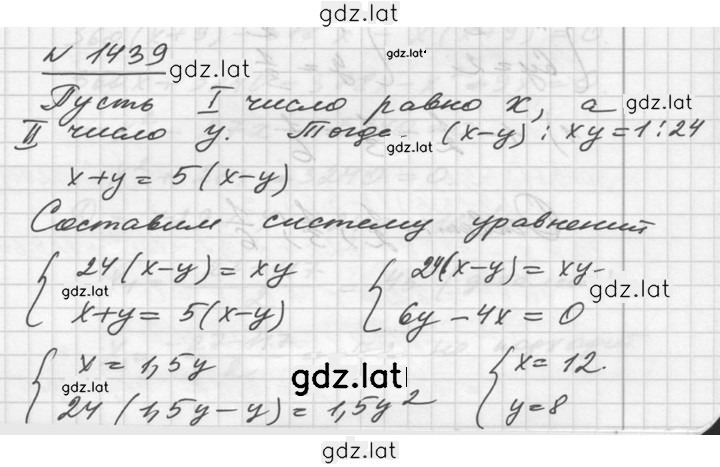 gdz.lat
№ 1439 gdz.lat gdz.lat
Пусть I число равно x, а gdz.lat
II число y. Тогда gdz.lat (x-y) : xy = 1:24
x+y = 5(x-y)
Составим систему уравнений
{ 24(x-y) = xy { 24(x-y) = xy
gdz.lat gdz.lat
x+y = 5(x-y) 6y - 4x = 0
{ x = 1,5y { x = 12.
gdz.lat gdz.lat
24(1,5y-y) = 1,5y² y = 8
gdz.lat